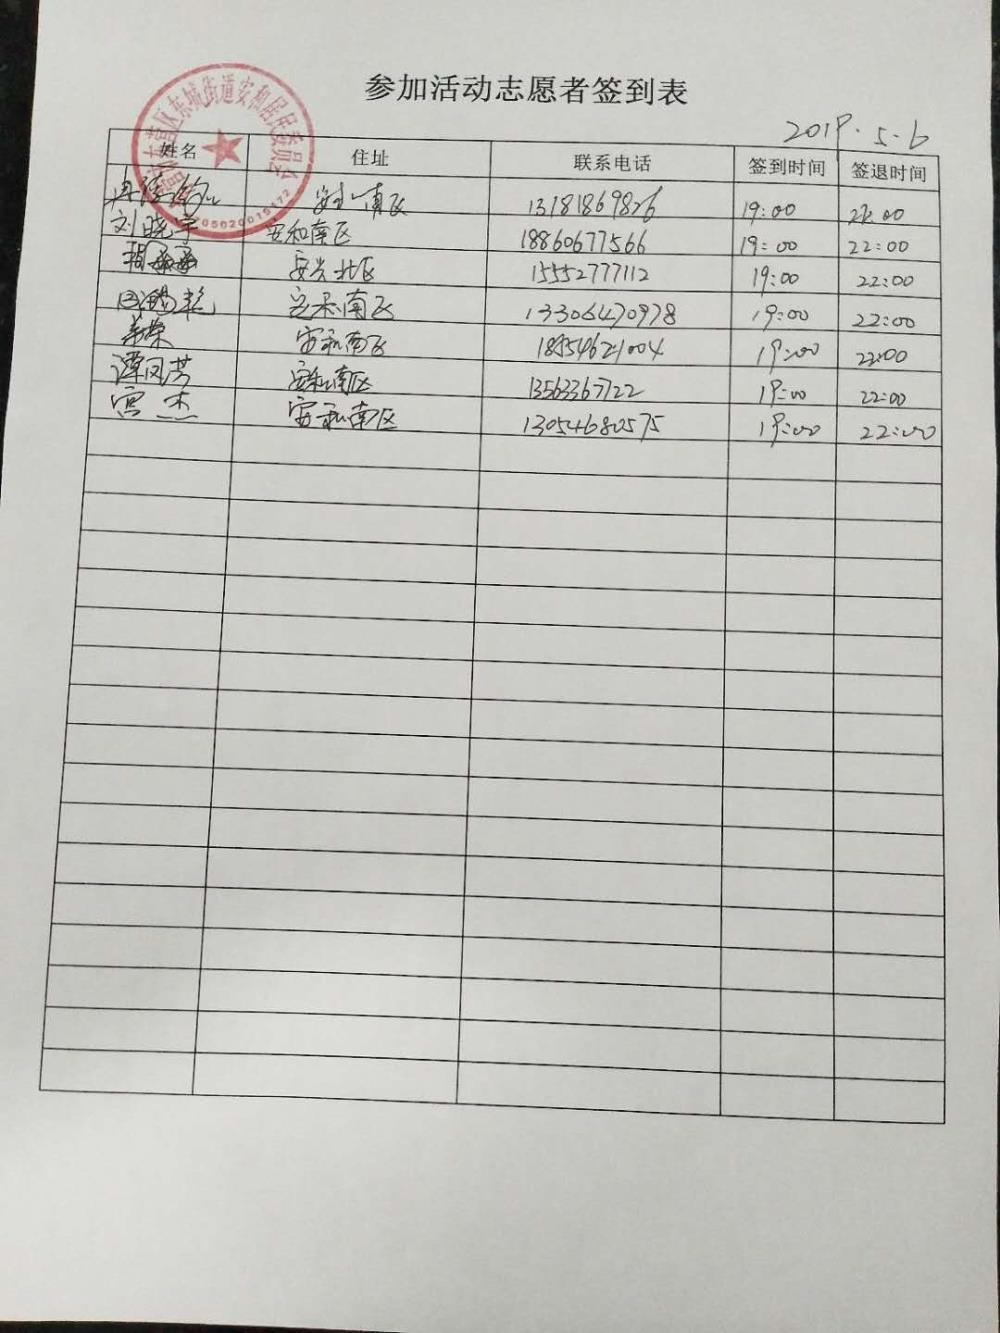 参加活动志愿者签到表
2019.5.6
东营区东城街道安和居民委员会
姓名 住址 联系电话 签到时间 签退时间
南区 13181869826 19:00 22:00
刘晓 安和南区 18860677566 19:00 22:00
安兴北区 15552777112 19:00 22:00
安和南区 13306470978 19:00 22:00
安和南区 18954621004 19:00 22:00
谭凤芳 安和南区 13563367122 19:00 22:00
宫杰 安和南区 13054680575 19:00 22:00